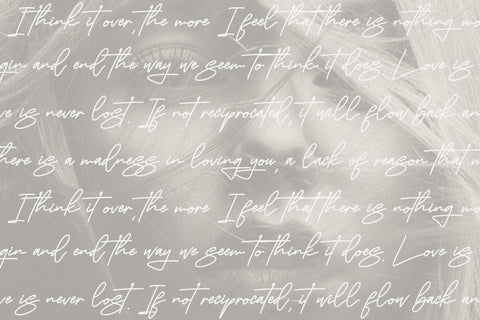 I think it over, the more I feel that there is nothing mo
gin and end the way we seem to think it does. Love is
ve is never lost. If not reciprocated, it will flow back an
there is a madness in loving you, a lack of reason that m
I think it over, the more I feel that there is nothing mo
gin and end the way we seem to think it does. Love is
ve is never lost. If not reciprocated, it will flow back an